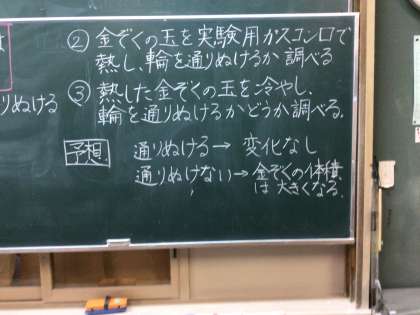 ② 金ぞくの玉を実験用ガスコンロで
熱し、輪を通りぬけるか調べる
りぬける
③ 熱した金ぞくの玉を冷やし、
輪を通りぬけるかどうか調べる.
予想.
通りぬける→ 変化なし
通りぬけない→金ぞくの体積
は大きくなる.